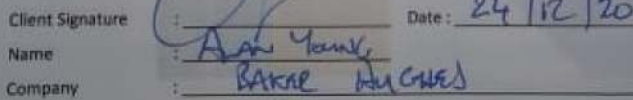 Client Signature : Date : 24/12/20
Name : ALAN YOUNG
Company : BAKER HUGHES